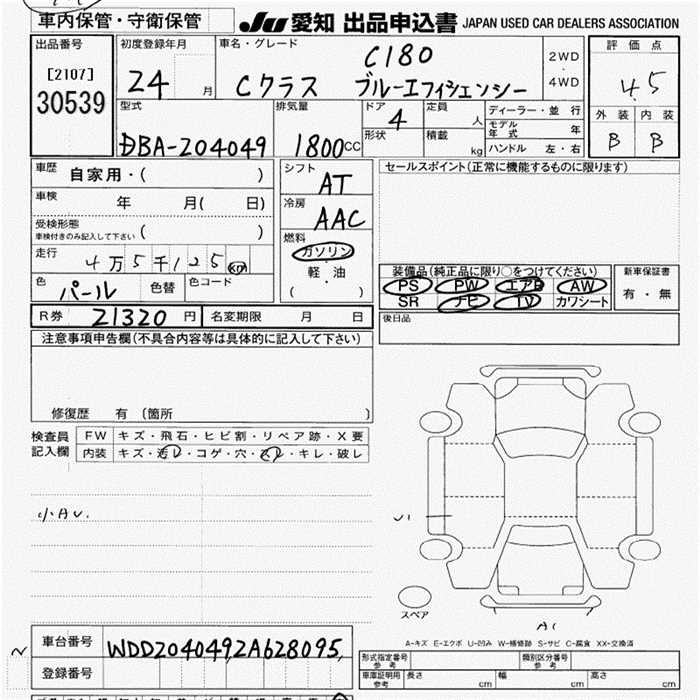 車内保管・守衛保管
JU 愛知 出品申込書 JAPAN USED CAR DEALERS ASSOCIATION
出品番号 初度登録年月 車名・グレード 評価点
C180 2WD
[2107] 24 月 Cクラス ブルーエフィシェンシー 4WD 4.5
30539 型式 排気量 ドア 4 定員 人 ディーラー・並行 外装 内装
モデル年式 年
DBA-204049 1800CC 形状 積載 kg ハンドル 左・右 B B
車歴 自家用・( ) シフト AT セールスポイント(正常に機能するものに限ります)
車検 年 月( 日) 冷房 AAC
受検形態 ( )
車検付きのみ記入して下さい
燃料 ガソリン
走行 4万5千125km 軽・油 装備品(純正品に限り○をつけてください) 新車保証書
色 パール 色替 色コード ( ) PS PW エアB AW 有・無
SR ナビ TV カワシート
R券 21320円 名変期限 月 日 後日品
注意事項申告欄(不具合内容等は具体的に記入して下さい)
修復歴 有 (箇所 )
検査員 FW キズ・飛石・ヒビ割・リペア跡・X要
記入欄 内装 キズ・汚レ・コゲ・穴・スレ・キレ・破レ
小AU.
スペア
A-キズ E-エクボ U-凹み W-補修跡 S-サビ C-腐食 XX-交換済
車台番号 WDD2040492A628095
登録番号
形式指定番号 参考 類別区分番号 参考
車庫証明用 参考 長さ cm 幅 cm 高さ cm